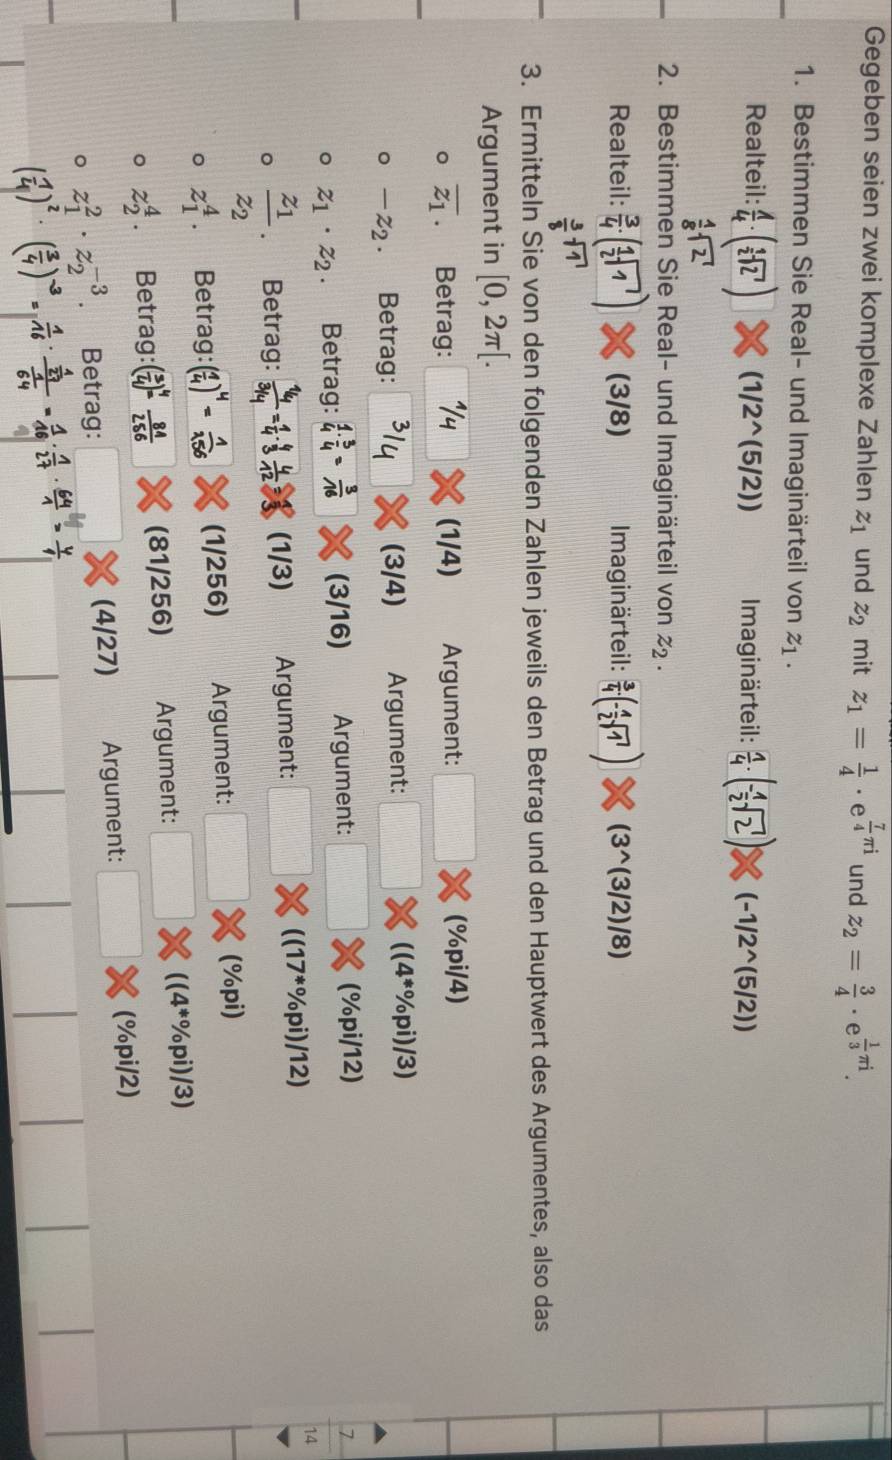 Gegeben seien zwei komplexe Zahlen z₁ und z₂ mit z₁ = 1/4 · e^(7/4 πi) und z₂ = 3/4 · e^(1/3 πi).
1. Bestimmen Sie Real- und Imaginärteil von z₁.
Realteil: 1/4 · (1/2 √2) ✗ (1/2^(5/2)) Imaginärteil: 1/4 · (-1/2 √2) ✗ (-1/2^(5/2))
1/8 √2
2. Bestimmen Sie Real- und Imaginärteil von z₂.
Realteil: 3/4 · (1/2 √1) ✗ (3/8) Imaginärteil: 3/4 · (-1/2 √1) ✗ (3^(3/2)/8)
3/8 √1
3. Ermitteln Sie von den folgenden Zahlen jeweils den Betrag und den Hauptwert des Argumentes, also das
Argument in [0, 2π[.
○ z̅₁. Betrag: 1/4 ✗ (1/4) Argument: ✗ (%pi/4)
○ −z₂. Betrag: 3/4 ✗ (3/4) Argument: ✗ ((4*%pi)/3)
○ z₁ · z₂. Betrag: 1/4 · 3/4 = 3/16 ✗ (3/16) Argument: ✗ (%pi/12)
○ z₁/z₂. Betrag: (1/4)/(3/4) = 1/4 · 4/3 4/12 = 1/3 ✗ (1/3) Argument: ✗ ((17*%pi)/12)
○ z₁⁴. Betrag: (1/4)⁴ = 1/256 ✗ (1/256) Argument: ✗ (%pi)
○ z₂⁴. Betrag: (3/4)⁴ = 81/256 ✗ (81/256) Argument: ✗ ((4*%pi)/3)
○ z₁² · z₂⁻³. Betrag: ✗ (4/27) Argument: ✗ (%pi/2)
(1/4)² · (3/4)⁻³ = 1/16 · 1/(27/64) = 1/16 · 1/27 · 64/1 = 4/1
7
14